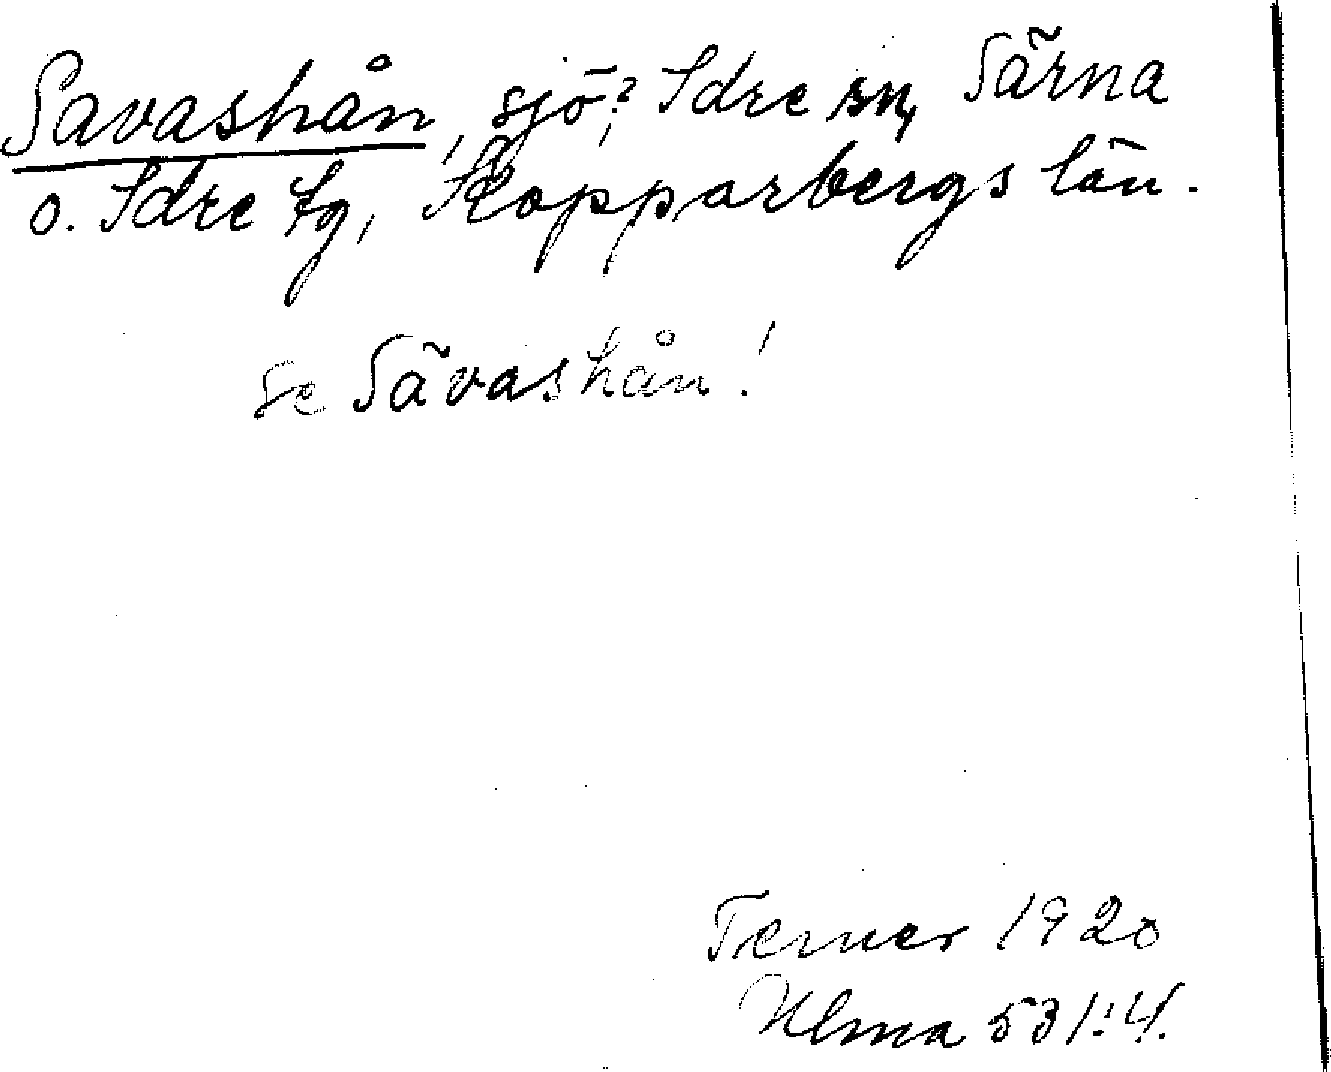 Savashån, sjö? Idre sn, Särna
o. Idre tg, Kopparbergs län.
se Sävashån!
Terner 1920
Ulma 531:4.